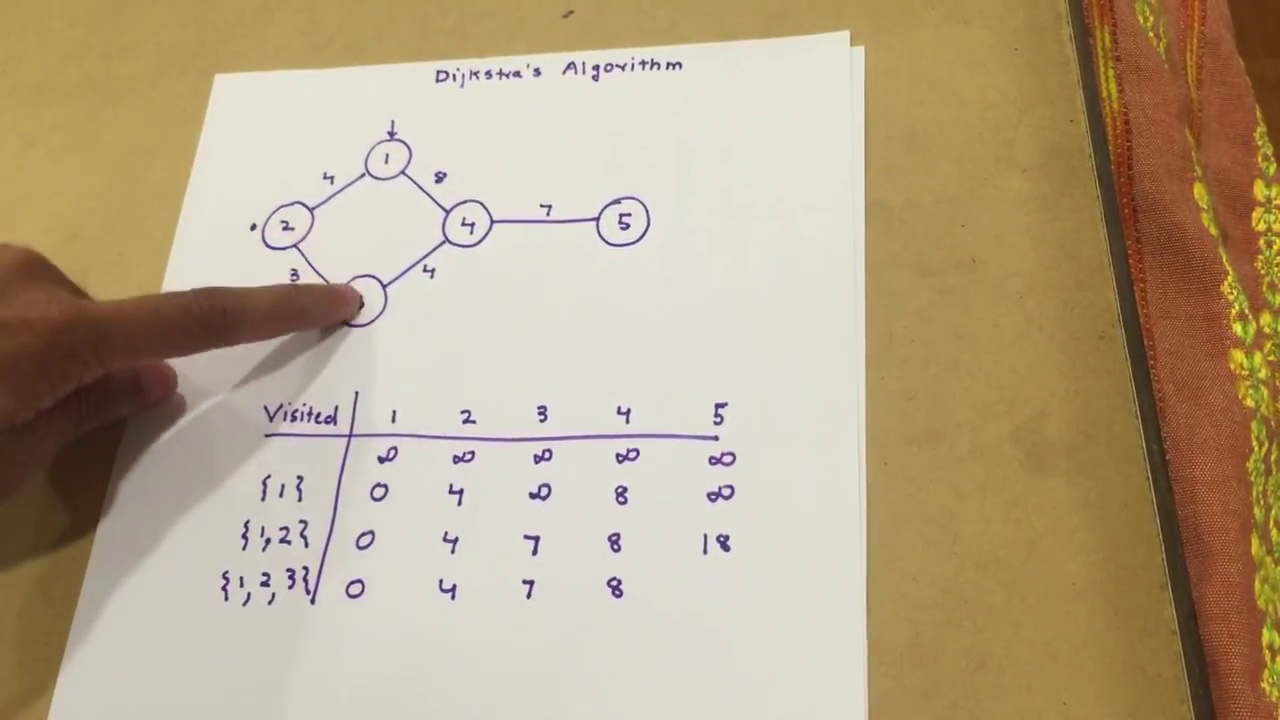 Dijkstra's Algorithm
1
4 8
2 4 7 5
3 4
Visited 1 2 3 4 5
∞ ∞ ∞ ∞ ∞
{1} 0 4 ∞ 8 ∞
{1,2} 0 4 7 8 18
{1,2,3} 0 4 7 8